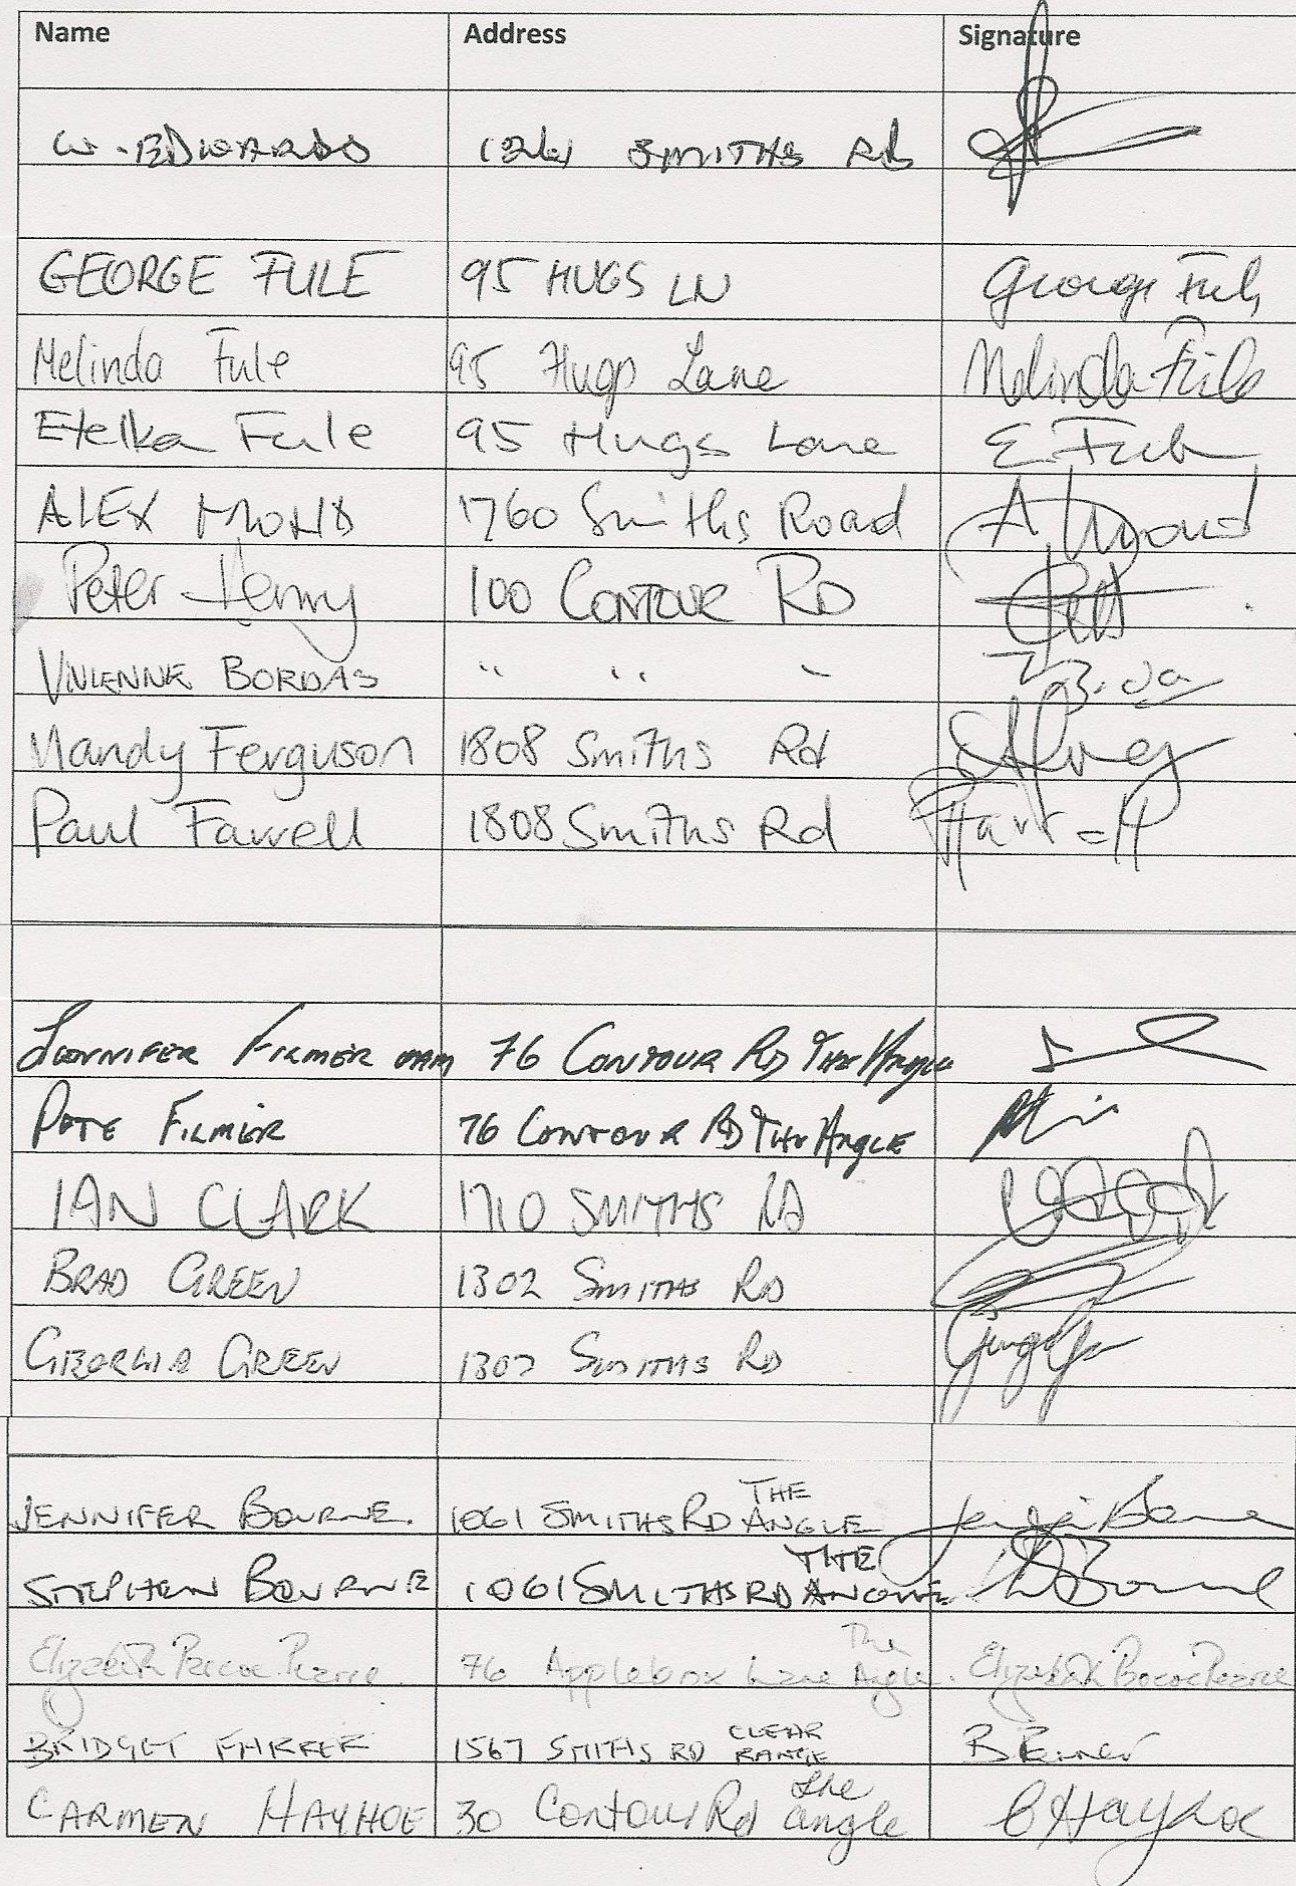 Name Address Signature
W. EDWARDS 1261 SMITHS Rd
GEORGE FULE 95 HUGS LN George Fule
Melinda Fule 95 Hugs Lane Melinda Fule
Etelka Fule 95 Hugs Lane E. Fule
ALEX MOND 1760 Smiths Road A Mond
Peter Henny 100 CONTOUR RD
VIVIENNE BORDAS " " "
Mandy Ferguson 1808 Smiths Rd
Paul Farrell 1808 Smiths Rd
JENNIFER FILMER OAM 76 CONTOUR RD THE Angle
PETE FILMER 76 CONTOUR RD THE ANGLE
IAN CLARK 1710 SMITHS RD
BRAD GREEN 1302 SMITHS RD
GEORGIA GREEN 1302 SMITHS RD
THE
JENNIFER BOURNE. 1061 SMITHS RD ANGLE Bourne
THE
STEPHEN BOURNE 1061 SMITHS RD ANGLE Bourne
The
Elizabeth Pascoe Pearce 76 Applebox Lane Angle. Elizabeth Pascoe Pearce
CLEAR
BRIDGET FARRER 1567 SMITHS RD RANGE B
the
CARMEN HAYHOE 30 Contour Rd angle C Hayhoe